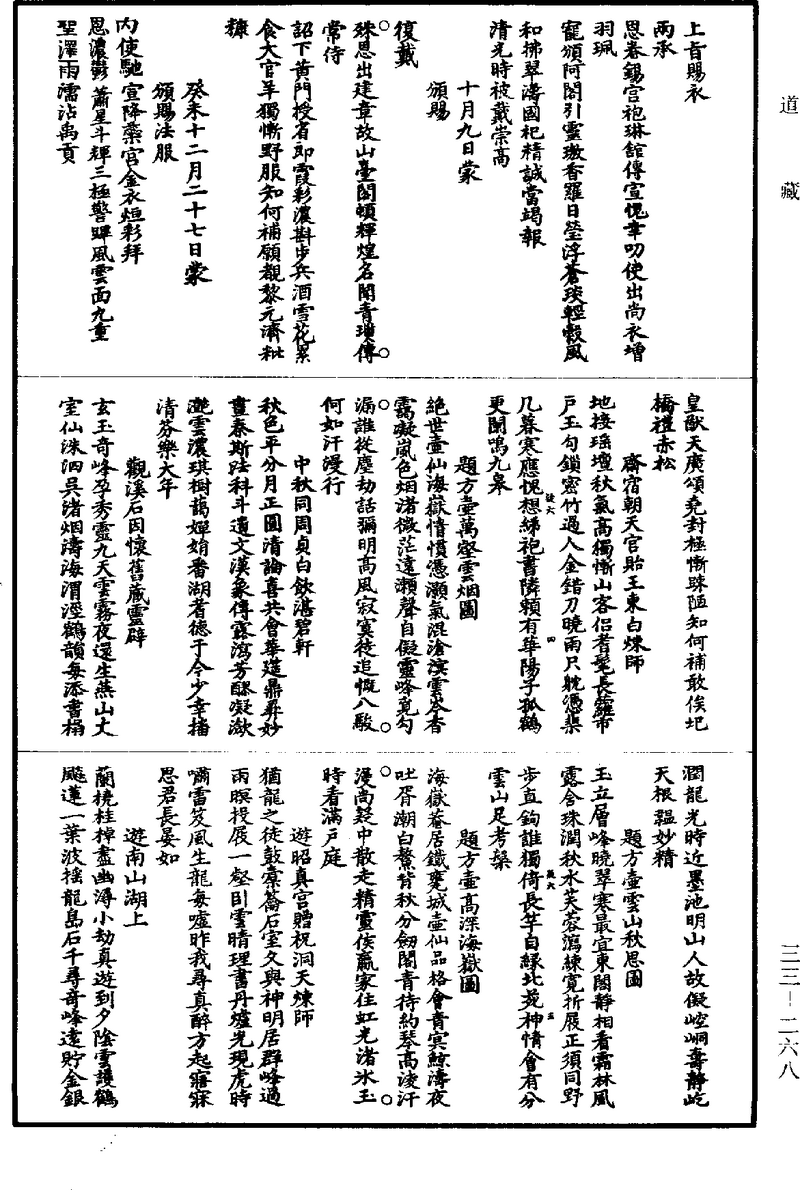 道藏
上旨賜衣
兩承
恩眷錫宮袍琳館傳宣愧幸叨使出尚衣增
羽珮
寵頒阿閣引靈璈香羅日瑩浮蒼琰輕縠風
和拂翠濤國祀精誠當竭報
清光時被戴崇高
十月九日蒙
頒賜
復戴
殊恩出建章故山臺閣頓輝煌名聞青瑣傳
常侍
詔下黃門授省郎霞彩濃斟步兵酒雪花累
食大官羊獨慚野服知何補願覩黎元濟秕
糠
癸未十二月二十七日蒙
頒賜法服
內使馳宣降蘂宮金衣烜彩拜
恩濃鬱蕭星斗輝三極警蹕風雲面九重
聖澤雨濡沾禹貢
皇猷天廣頌堯封極慚踈陋知何補敢俟圯
橋禮赤松
齋宿朝天宮貽王東白煉師
地接瑶壇秋氣高獨慚山客侶耆髦長蘿市
戶玉勾鎖密竹過人金錯刀曉雨只躭憑棐
几暮寒應愧想綈袍書隣賴有華陽子孤鶴
更聞鳴九皋
題方壺萬壑雲烟圖
絕世壺仙海嶽情慣憑灝氣混滄溟雲岑杳
靄凝嵐色烟渚微茫遠瀨聲自儗靈峰覓勾
漏誰從塵劫話彌明高風寂寞徒追慨八駿
何如汗漫行
中秋同周貞白飲湛碧軒
秋色平分月正圓清論喜共會華筵鼎彞妙
畫秦斯跡科斗遺文漢象傳露瀉芳醪凝瀲
灩雲濃琪樹藹嬋娟番湖耆德于今少幸播
清芬樂大年
觀溪石因懷舊藏靈壁
玄玉奇峰孕秀靈九天雲霧夜還生燕山丈
室仙洙泗吳渚烟濤海渭涇鶴韻每添書榻
潤龍光時近墨池明山人故儗崆峒壽靜屹
天根韞妙精
題方壺雲山秋思圖
玉立層峰曉翠寒最宜東閣靜相看霜林風
露含珠潤秋水芙蓉瀉練寬折屐正須同野
步直鉤誰獨倚長竿自緣北苑神情會有分
雲山足考槃
題方壺高深海嶽圖
海嶽菴居鐵甕城壺仙品格會青冥鯨濤夜
吐胥潮白鰲背秋分劔閣青待約琴高淩汗
漫尚疑中散走精靈俟羸家住虹光渚氷玉
時看滿戶庭
遊昭真宮贈祝洞天煉師
猶龍之徒鼓橐籥石室久與神明居群峰過
雨暝投屐一壑臥雲晴理書丹爐光現虎時
嘯雷笈風生龍每噓昨我尋真醉方起寤寐
思君長晏如
遊南山湖上
蘭橈桂棹盡幽潯小劫真遊到夕陰雲護鶴
飈蓮一葉波搖龍島石千尋奇峰遠貯金銀
三三－二六八